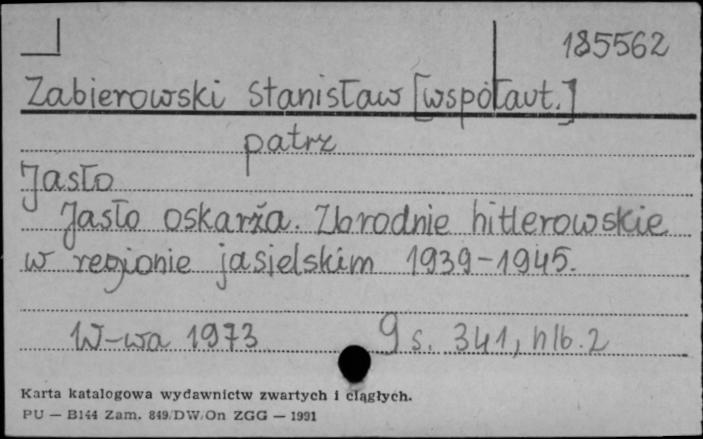 185562
Zabierowski Stanisław [współaut.]
patrz
Jasło
Jasło oskarża. Zbrodnie hitlerowskie
w regionie jasielskim 1939-1945.
W-wa 1973 9 s. 341, nlb. 2
Karta katalogowa wydawnictw zwartych i ciągłych.
PU — B144 Zam. 849/DW/On ZGG — 1991